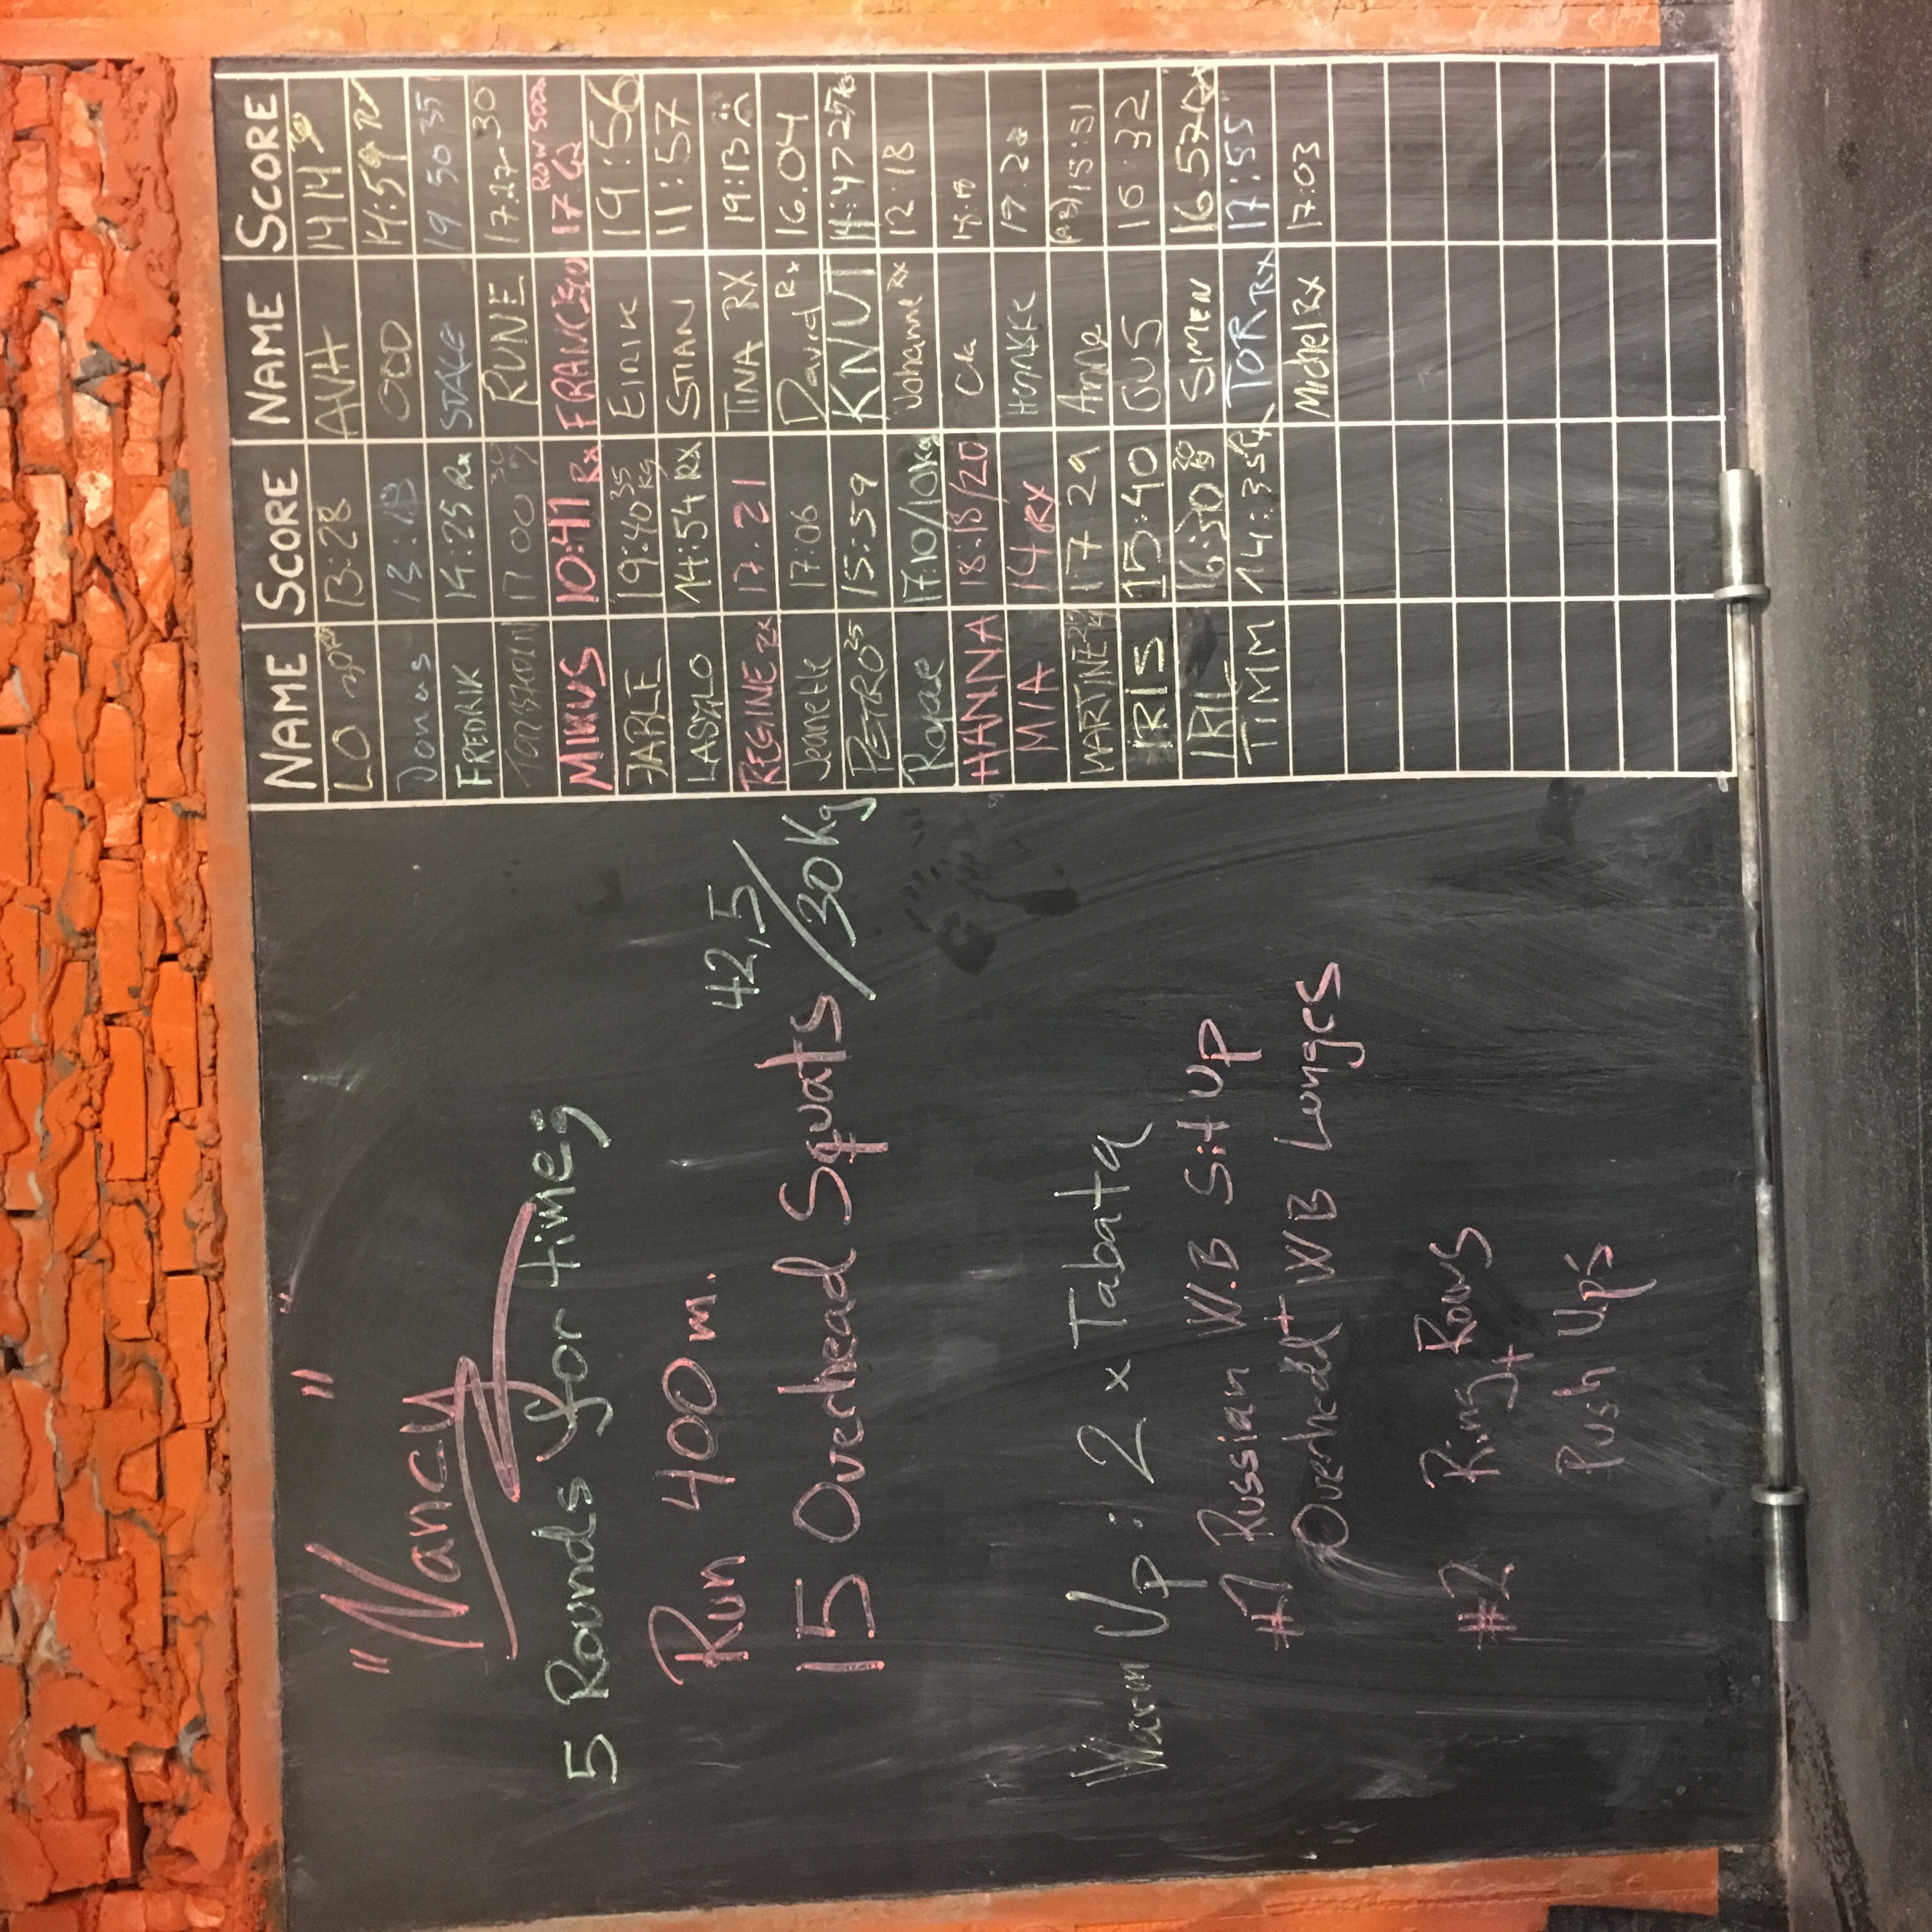 "Nancy"
5 Rounds for time;
Run 400 m.
15 Overhead Squats 42,5/30Kg
Warm Up: 2 x Tabata
#1 Russian W.B Sit up
Overhead WB Lunges
#2 Ring Rows
+
Push Up's
NAME SCORE NAME SCORE
LO 13:28 1414
Jonas 13:13 ODD 14:59 Rx
FREDRIK 14:25 Rx STÅLE 19 50 35
17 00 RUNE 17.27 30
MINUS 10:41 Rx FRANCISCO 17 ROW 500m
JARLE 19:40 35 kg EIRIK 19:56
LASZLO 14:54 RX STIAN 11:57
REGINE 17:21 TINA RX 19:13
Jeanette 17:06 David Rx 16.04
PETRO 25 15:59 KNUT 14:47 25 kg
17:10/10kg Johanne Rx 12:18
HANNA 18:13/20
MIA 14 RX 19.20
MARTINE 17 29 Anne 15:51
IRIS 15:40 GUS 16:32
16:30 30 kg SIMEN 16 57
TIMM 14:35 Rx TOR RX 17:55
Michel Rx 17:03